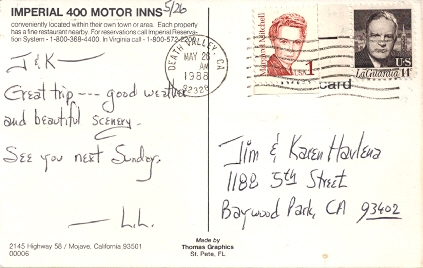 5/26
IMPERIAL 400 MOTOR INNS
conveniently located within their own town or area. Each property
has a fine restaurant nearby. For reservations call Imperial Reserva-
tion System - 1-800-368-4400. In Virginia call - 1-800-572-2200
DEATH VALLEY, CA
MAY 26
AM
1988
92328
Margaret Mitchell
USA
1
US
La Guardia 14¢
card
J & K —
Great trip --- good weather
and beautiful scenery.
See you next Sunday.
— L.L.
Jim & Karen Havlena
1188 5th Street
Baywood Park, CA 93402
2145 Highway 58 / Mojave, California 93501
00006
Made by
Thomas Graphics
St. Pete, FL